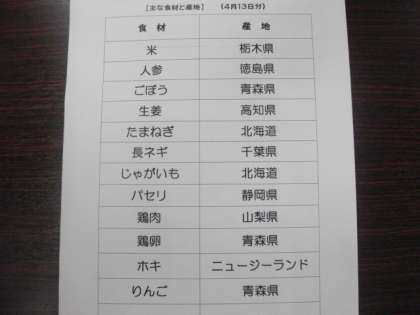 [主な食材と産地] (4月13日分)
食材 産地
米 栃木県
人参 徳島県
ごぼう 青森県
生姜 高知県
たまねぎ 北海道
長ネギ 千葉県
じゃがいも 北海道
パセリ 静岡県
鶏肉 山梨県
鶏卵 青森県
ホキ ニュージーランド
りんご 青森県